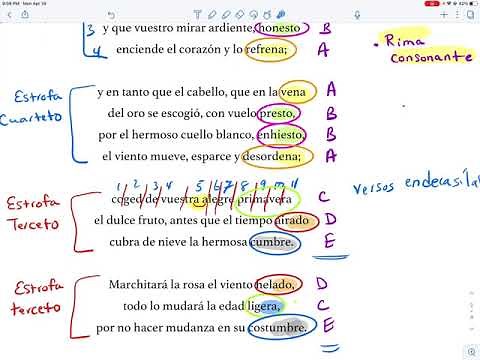 9:08 PM Mon Apr 20
42%
3 y que vuestro mirar ardiente, honesto B
4 enciende el corazón y lo refrena; A
• Rima
consonante
Estrofa
Cuarteto
y en tanto que el cabello, que en la vena A
del oro se escogió, con vuelo presto, B
por el hermoso cuello blanco, enhiesto, B
el viento mueve, esparce y desordena; A
1 2 3 4 5 6 7 8 9 10 11
Estrofa
Terceto
coged de vuestra alegre primavera C
el dulce fruto, antes que el tiempo airado D
cubra de nieve la hermosa cumbre. E
versos endecasíla
Estrofa
terceto
Marchitará la rosa el viento helado, D
todo lo mudará la edad ligera, C
por no hacer mudanza en su costumbre. E